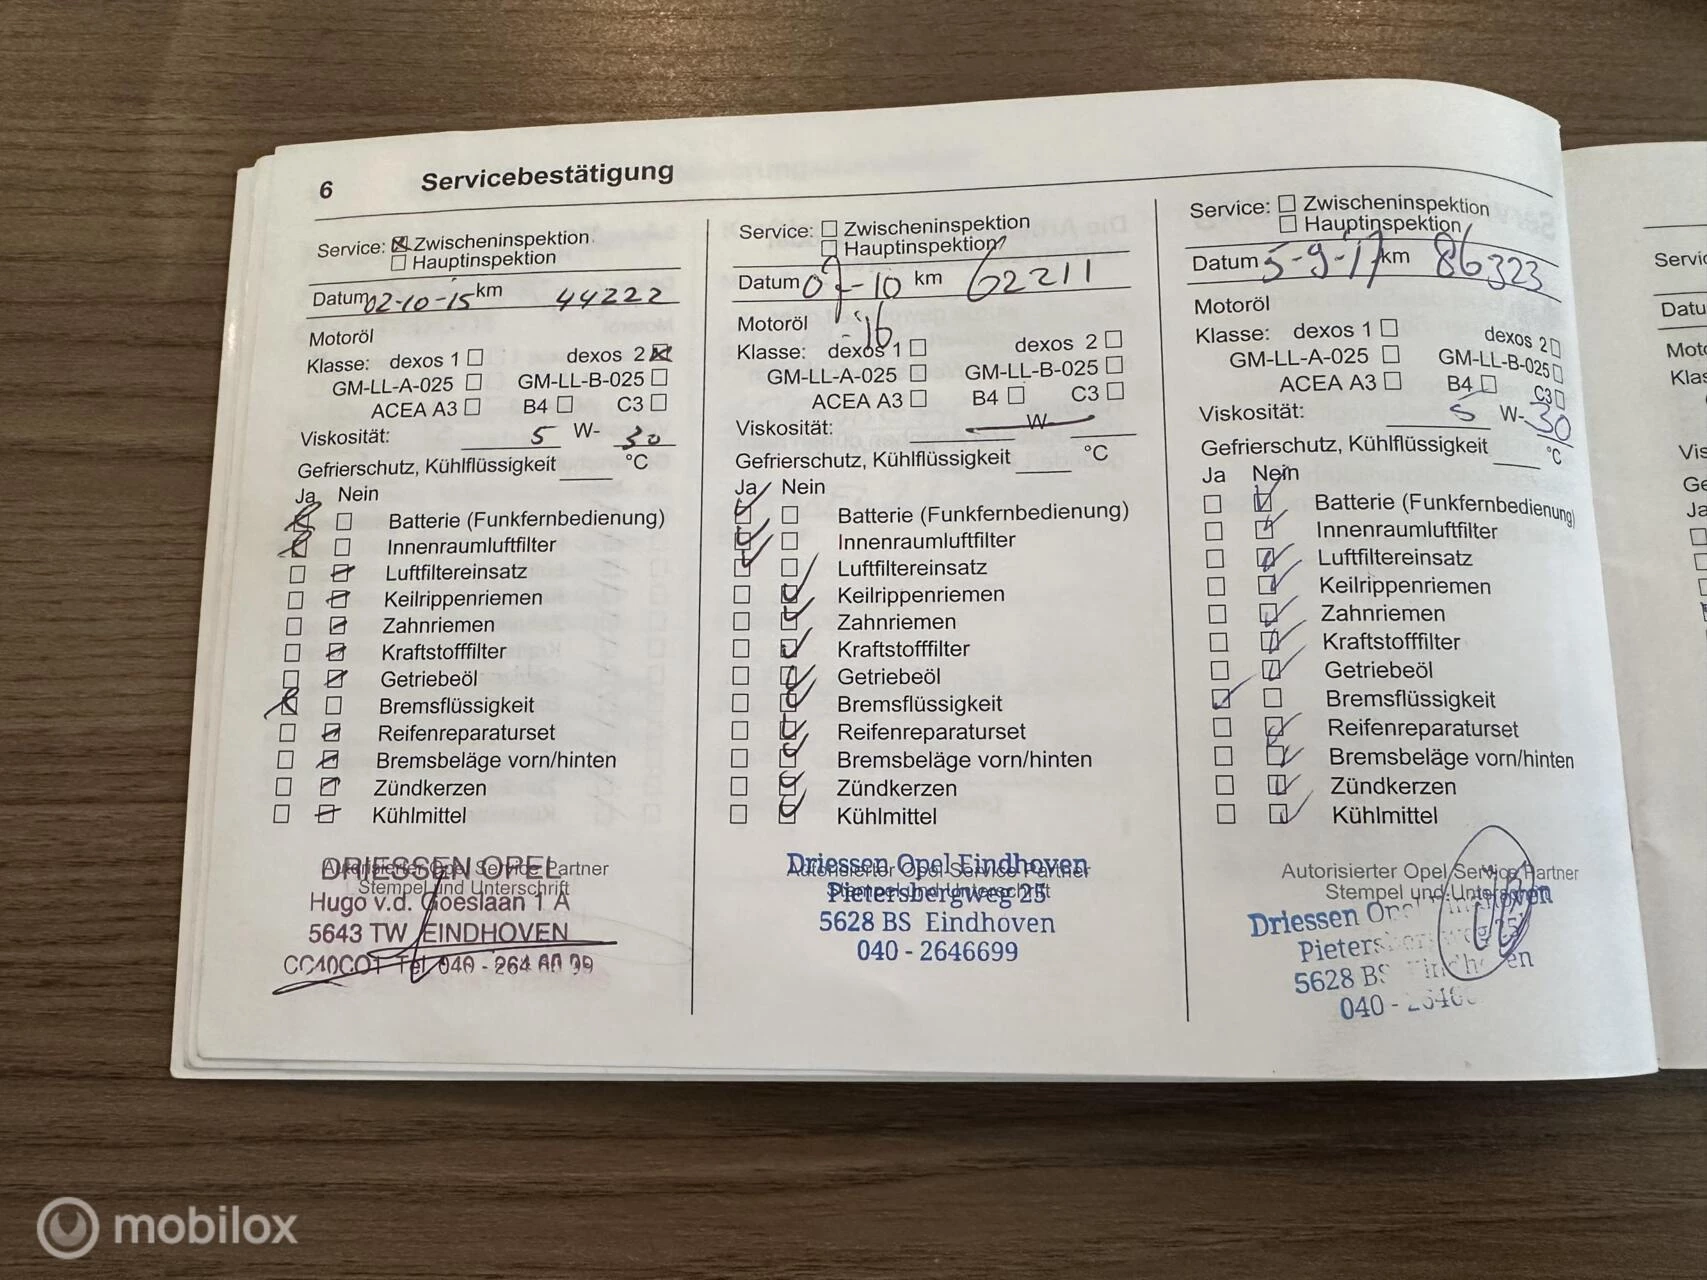 6 Servicebestätigung
Service: Zwischeninspektion
Hauptinspektion
Datum 02-10-15 km 44222
Motoröl
Klasse: dexos 1 dexos 2
GM-LL-A-025 GM-LL-B-025
ACEA A3 B4 C3
Viskosität: 5 W- 30
Gefrierschutz, Kühlflüssigkeit °C
Ja Nein
Batterie (Funkfernbedienung)
Innenraumluftfilter
Luftfiltereinsatz
Keilrippenriemen
Zahnriemen
Kraftstofffilter
Getriebeöl
Bremsflüssigkeit
Reifenreparaturset
Bremsbeläge vorn/hinten
Zündkerzen
Kühlmittel
Autorisierter Opel Service Partner
Stempel und Unterschrift
DRIESSEN OPEL
Hugo v.d. Goeslaan 1 A
5643 TW EINDHOVEN
Tel. 040 - 264 66 99
Service: Zwischeninspektion
Hauptinspektion
Datum 07-10 km 62211
-16
Motoröl
Klasse: dexos 1 dexos 2
GM-LL-A-025 GM-LL-B-025
ACEA A3 B4 C3
Viskosität: W-
Gefrierschutz, Kühlflüssigkeit °C
Ja Nein
Batterie (Funkfernbedienung)
Innenraumluftfilter
Luftfiltereinsatz
Keilrippenriemen
Zahnriemen
Kraftstofffilter
Getriebeöl
Bremsflüssigkeit
Reifenreparaturset
Bremsbeläge vorn/hinten
Zündkerzen
Kühlmittel
Autorisierter Opel Service Partner
Stempel und Unterschrift
Driessen Opel Eindhoven
Pietersbergweg 25
5628 BS Eindhoven
040 - 2646699
Service: Zwischeninspektion
Hauptinspektion
Datum 5-9-17 km 86323
Motoröl
Klasse: dexos 1 dexos 2
GM-LL-A-025 GM-LL-B-025
ACEA A3 B4 C3
Viskosität: 5 W- 30
Gefrierschutz, Kühlflüssigkeit °C
Ja Nein
Batterie (Funkfernbedienung)
Innenraumluftfilter
Luftfiltereinsatz
Keilrippenriemen
Zahnriemen
Kraftstofffilter
Getriebeöl
Bremsflüssigkeit
Reifenreparaturset
Bremsbeläge vorn/hinten
Zündkerzen
Kühlmittel
Autorisierter Opel Service Partner
Stempel und Unterschrift
Driessen Opel Eindhoven
Pietersbergweg 25
5628 BS Eindhoven
040 - 2646
Servic
Datu
Moto
Klas
Vis
Ge
Ja
mobilox